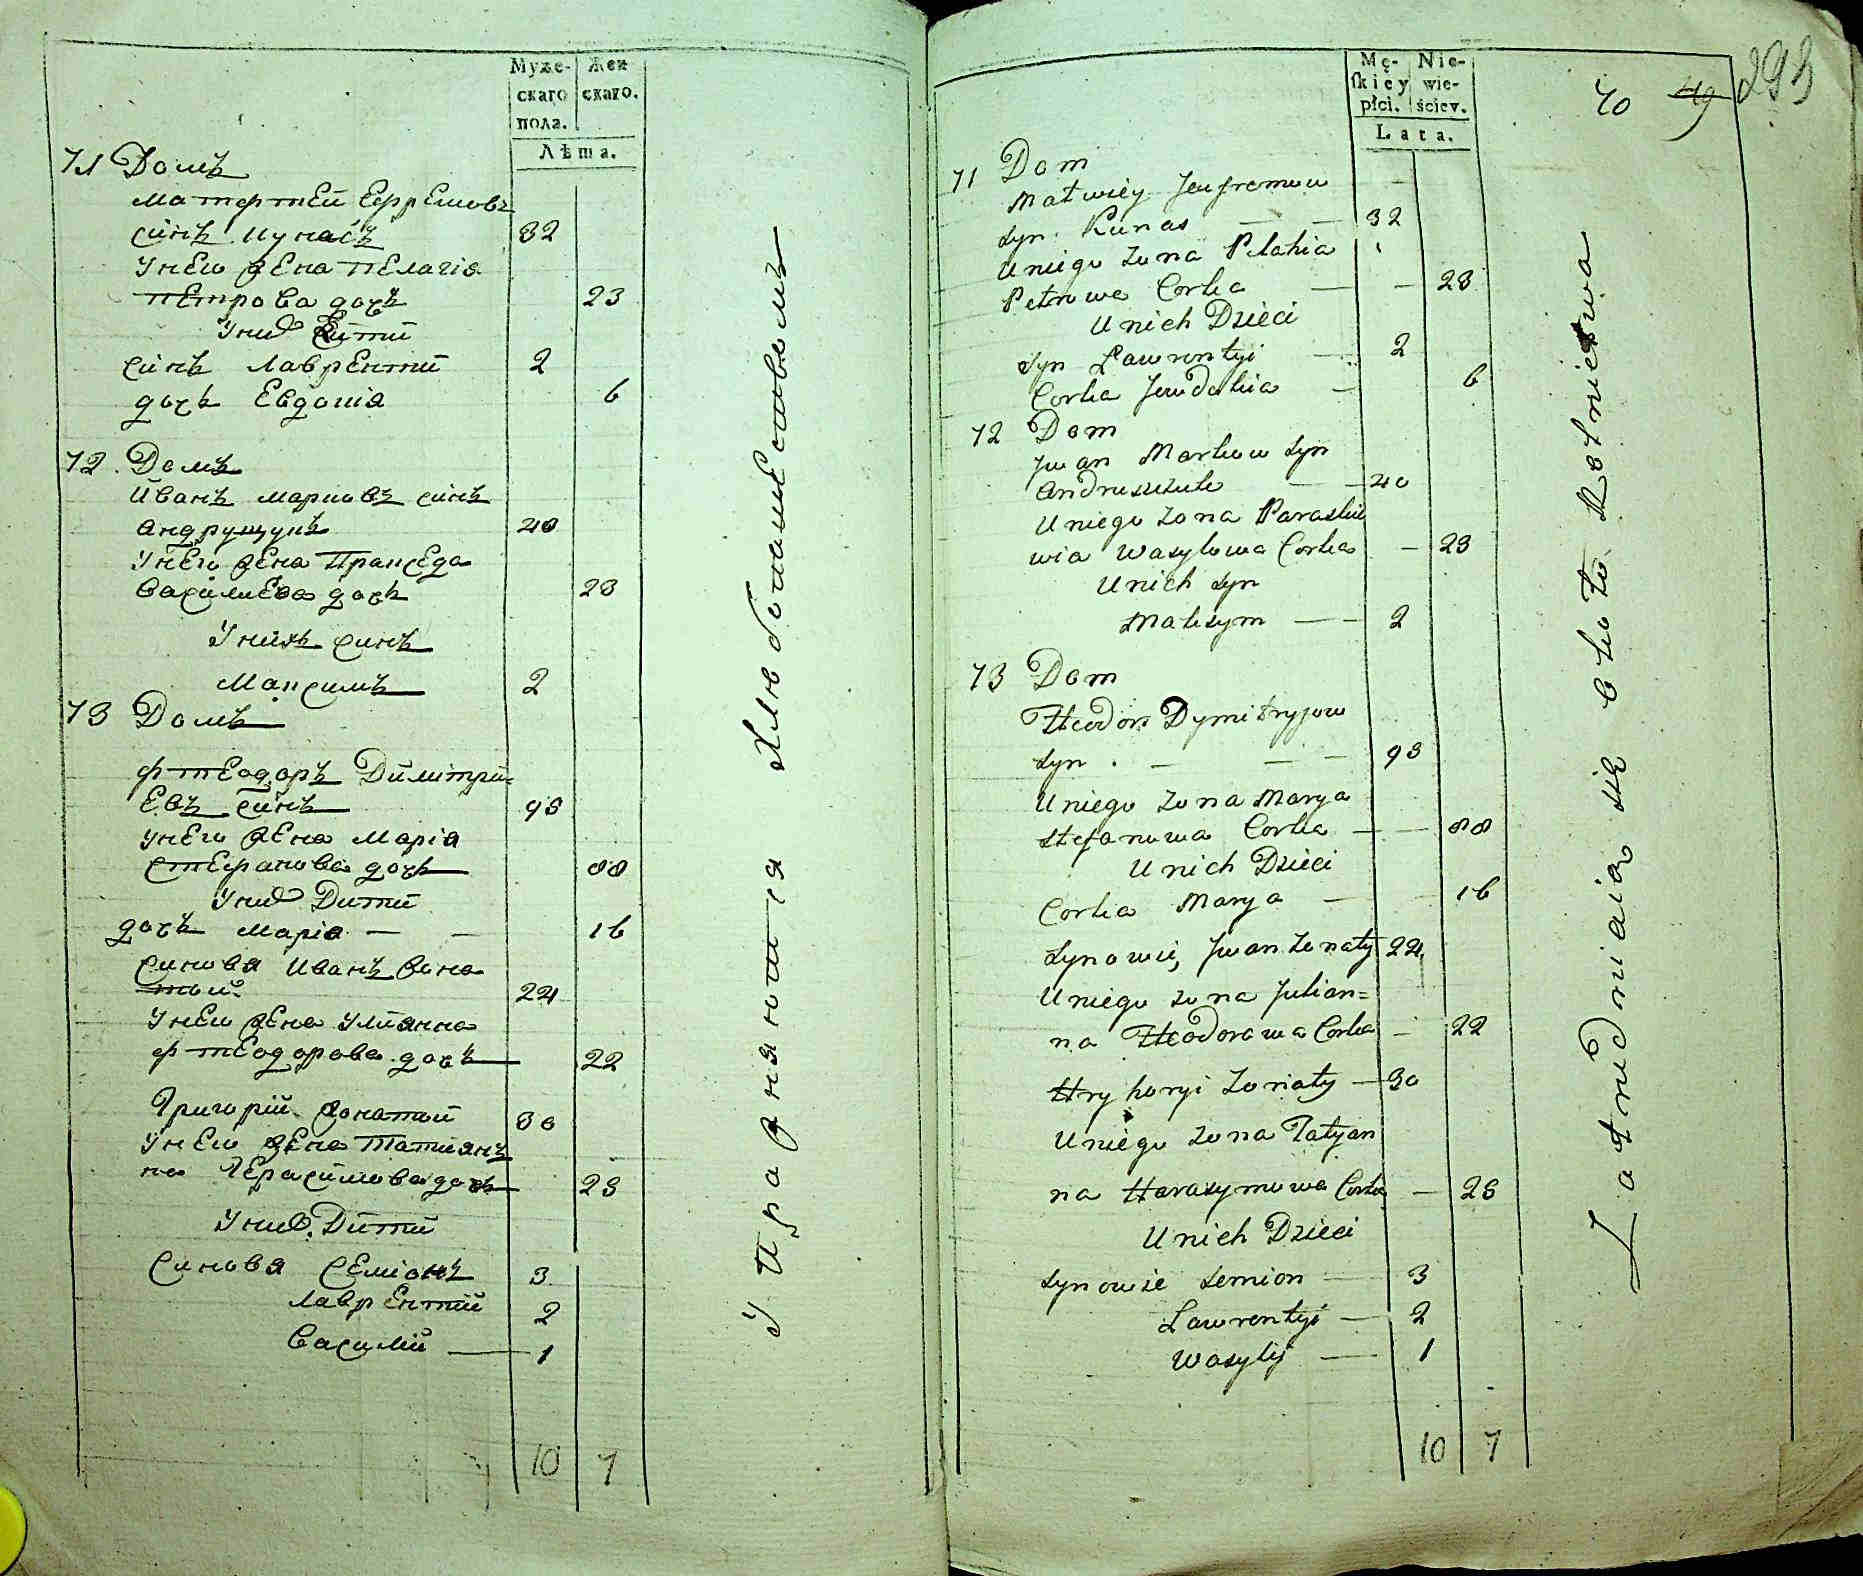 Муже-
скаго
пола.
Жен
скаго.
Лѣта.
71 Домъ
Матфтей Ефремовъ
синъ Кунасъ 32
Унего жена Пелагія
Петрова дочъ 23
Унихъ Дити
синъ Лаврентий 2
дочъ Евдокія 6
72. Домъ
Иванъ Марковъ синъ
Андрущукъ 40
Унего жена Пракседа
Василиева дочъ 23
Унихъ синъ
Максимъ 2
73 Домъ
Фтеодоръ Димітри=
евъ синъ 93
Унего жена Марія
Стефанова дочъ 88
Унихъ Дити
дочъ Марія — — 16
Синовя Иванъ жона
тый 22
Унего жена Улиянна
Фтеодорова дочъ 22
Григорій жонатый 30
Унего жена Татиянъ
на Герасимова дочъ 23
Унихъ Дити
Синовя Семіонъ 3
Лаврентий 2
Василий — 1
10 7
Упражняются хлѣбопашествомъ
70 49 293
Mę-
skiey
płci.
Nie-
wie-
ściey.
Lata.
71 Dom
Matwiey Jewfremow
syn Kunas — — 32
Uniego żona Pelahia
Petrowa Corka — — 23
Unich Dzieci
syn Lawrentyi — 2
Corka Jewdokia — 6
72 Dom
Jwan Markow syn
Andruszczuk — — 40
Uniego żona Paraskie
wia Wasylowa Corka — 23
Unich syn
Maksym — — 2
73 Dom
Theodor Dymitryjow
syn . — — — 93
Uniego żona Marya
Stefanowa Corka — — 88
Unich Dzieci
Corka Marya — — 16
Synowie, Jwan żonaty 22
Uniego żona Julian=
na Theodorowa Corka — 22
Hryhoryi żonaty — 30
Uniego żona Tatyan
na Harasymowa Corka — 23
Unich Dzieci
Synowie Semion — 3
Lawrentyi — 2
Wasylij — 1
10 7
Zatrudniaią się około Rolnictwa